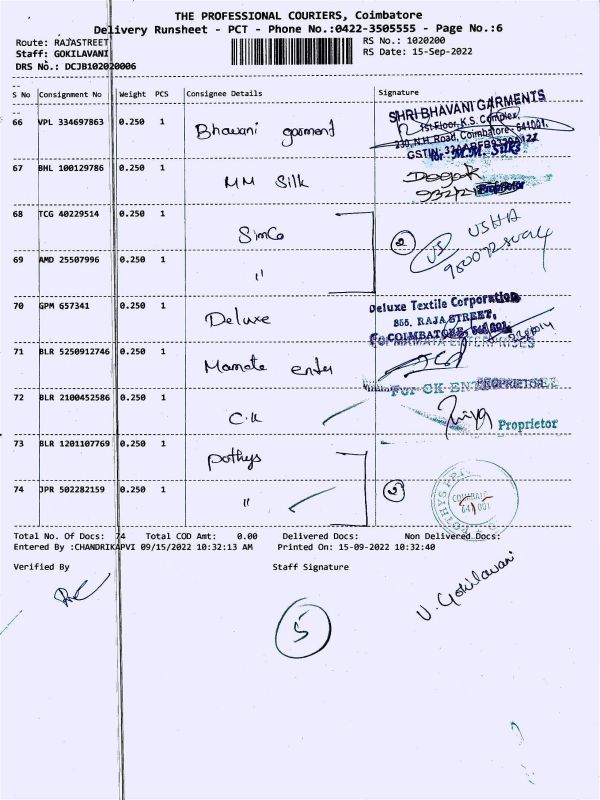 THE PROFESSIONAL COURIERS, Coimbatore
Delivery Runsheet - PCT - Phone No.:0422-3505555 - Page No.:6
Route: RAJASTREET RS No.: 1020200
Staff: GOKILAVANI RS Date: 15-Sep-2022
DRS No.: DCJB102020006
S No Consignment No Weight PCS Consignee Details Signature
66 VPL 334697863 0.250 1 Bhavani garment
SHRI BHAVANI GARMENTS
1st Floor, K.S. Complex,
230, N.H. Road, Coimbatore - 641001.
for M.M. Silks
67 BHL 100129786 0.250 1 MM Silk
Proprietor
68 TCG 40229514 0.250 1 SimCo 2 USHA
69 AMD 25507996 0.250 1 "
70 GPM 657341 0.250 1 Deluxe
Deluxe Textile Corporation
855, RAJA STREET,
COIMBATORE- 641 001
For MAMATA ENTERPRISES
71 BLR 5250912746 0.250 1 Mamate enter
PROPRIETOR
For CK
72 BLR 2100452586 0.250 1 C.K
Proprietor
73 BLR 1201107769 0.250 1 pothys
74 JPR 502282159 0.250 1 " 2
POTHYS
641 001
Total No. Of Docs: 74 Total COD Amt: 0.00 Delivered Docs: Non Delivered Docs:
Entered By :CHANDRIKAPVI 09/15/2022 10:32:13 AM Printed On: 15-09-2022 10:32:40
Verified By Staff Signature
V. Gokilavani
5